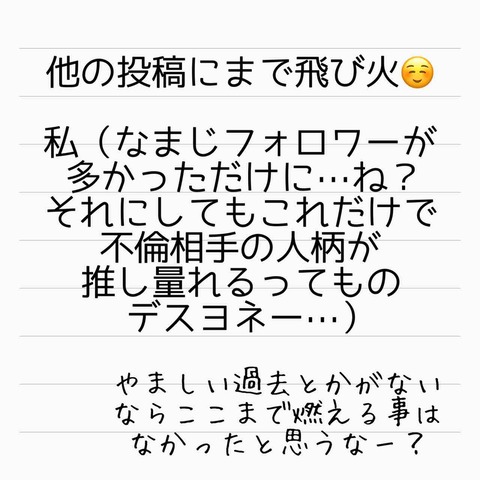 他の投稿にまで飛び火☺️
私（なまじフォロワーが
多かっただけに…ね？
それにしてもこれだけで
不倫相手の人柄が
推し量れるってもの
デスヨネー…）
やましい過去とかがない
ならここまで燃える事は
なかったと思うなー？